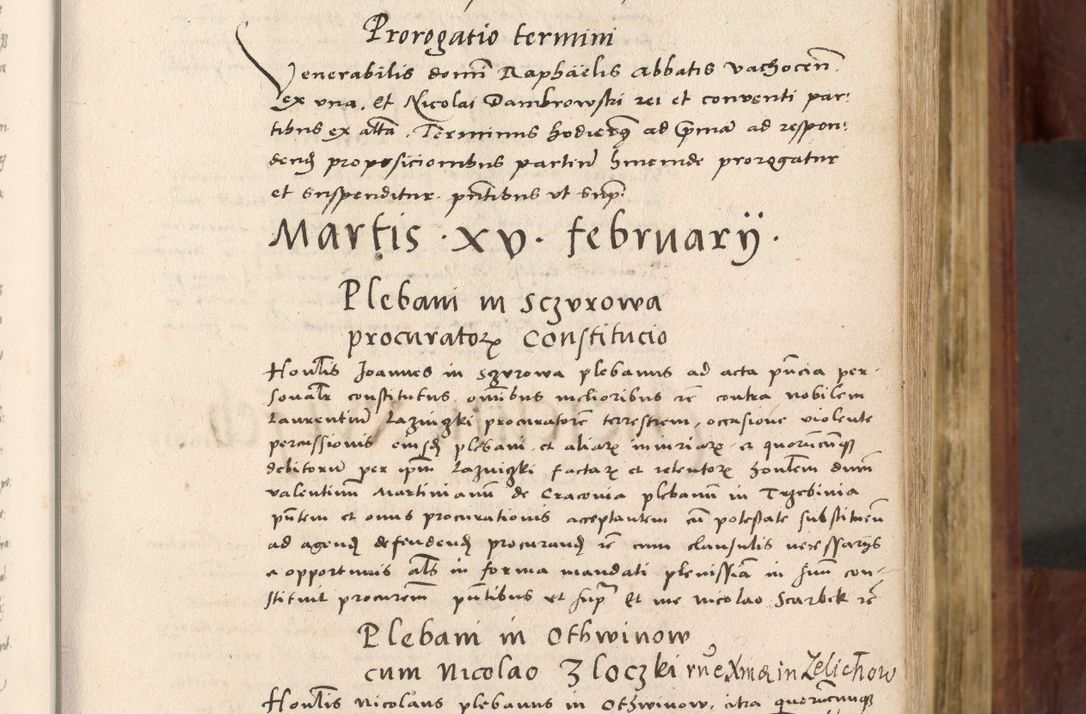 Prorogatio termini
Venerabilis domni Raphaëlis Abbatis Vachocen
ex una, et Nicolai Dambrowski rei et conventi par:
tibus ex alta. Terminus hodierng ad pma ad respon:
dend proposicionibus partiu hincinde prorogatur
et suspenditur. pntibus ut sup:
Martis · XV · februarij ·
Plebani in Sczurowa
procurator constitucio
Honlis Joannes in Szurowa plebanus ad acta pncia per-
sonalr constitutus. omnibus melioribus re contra nobilem
Laurentiu procuratore terrestrem, occasione violente
percussionis eiusd plebani et aliar iniuriar et quorucumq
debitoru per ipm factar et retentor honlem dum
valentinu Martinianu de Cracovia plebanu in Trzebinia
pntem et onus procurationis acceptantem cu potestate substituen
ad agend defendend procurand re cum clausulis necessarijs
a opportunis als in forma mandati plenissia in suu con-
stituit procurem pntibus ut supr Et me Nicolao Scarbek re
Plebani in Othwinow
cum Nicolao Zloczki in Zelichow
Honlis Nicolaus plebanus in Othwinow, citra quorucumq